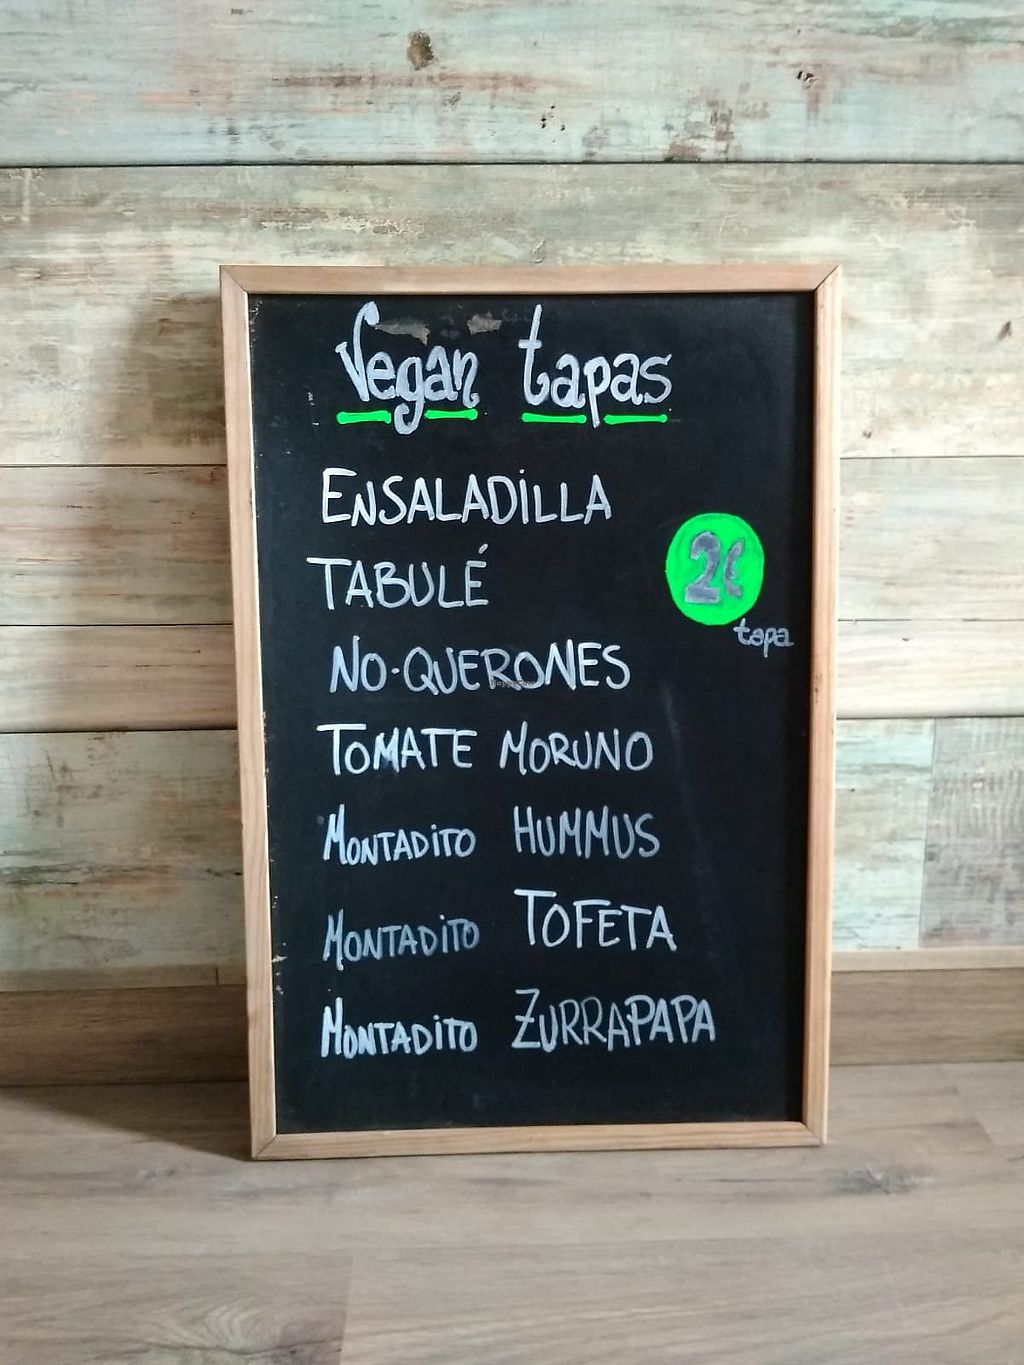 Vegan tapas
ENSALADiLLA
TABULÉ
2€
tapa
NO-QUERONES
TOMATE MORUNO
MONTADiTO HUMMUS
MONTADiTO TOFETA
MONTADiTO ZURRAPAPA